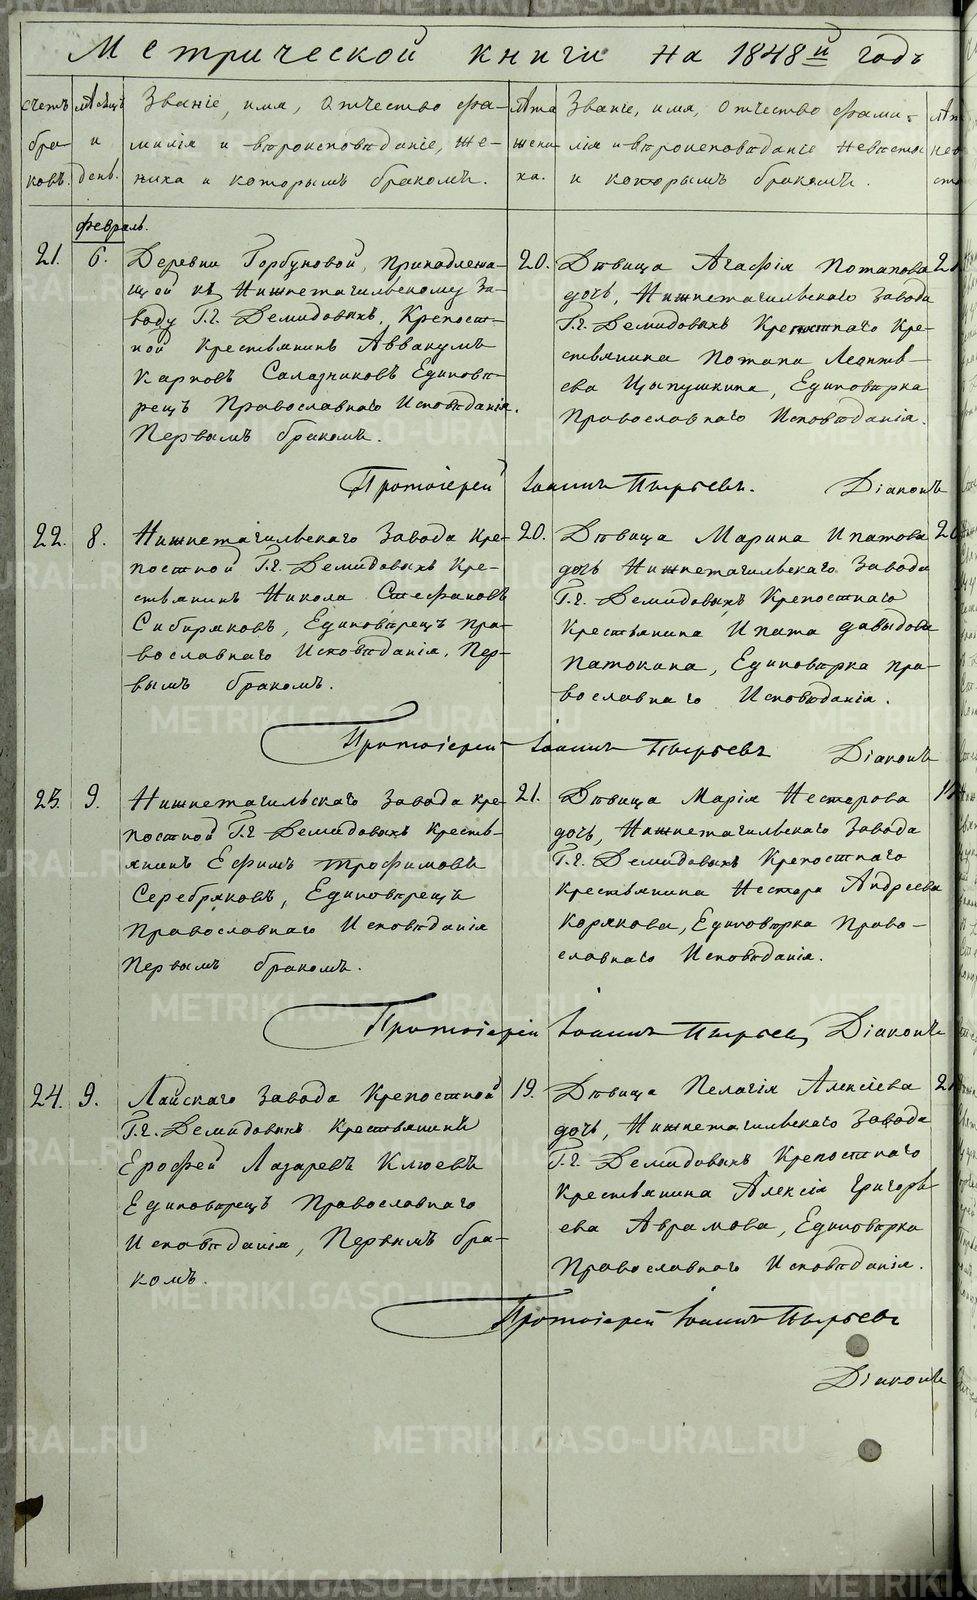 Метрической книги на 1848й годъ
счетъ браковъ.
мѣсяцъ и день.
Званіе, имя, отчество фамилія и вѣроисповѣданіе, жениха и которымъ бракомъ.
лѣта жениха.
Званіе, имя, отчество фамилія и вѣроисповѣданіе невѣсты и которымъ бракомъ.
февраль.
21. 6.
Деревни Горбуновой, принадлежа-
щой къ Нижнетагильскому за-
воду Г.г. Демидовыхъ, Крепост-
ной крестьянинъ Аввакумъ
Карповъ Салазчиковъ Единовѣ-
рецъ Православнаго Исповѣданія.
Первымъ бракомъ.
20.
Дѣвица Агафія Потапова
дочь, Нижнетагильскаго завода
Г.г. Демидовыхъ Крепостнаго Кре-
стьянина Потапа Леонть-
ева Цыпушкина, Единовѣрка
Православнаго Исповѣданія.
Протоіерей Іоаннъ Пырьевъ. Діаконъ
22. 8.
Нижнетагильскаго завода кре-
постной Г.г. Демидовыхъ Кре-
стьянинъ Никола Стефановъ
Сибиряковъ, Единовѣрецъ пра-
вославнаго Исповѣданія. Пер-
вымъ бракомъ.
20.
Дѣвица Марина Ипатова
дочь Нижнетагильскаго завода
Г.г. Демидовыхъ Крепостнаго
Крестьянина Ипата давыдова
Патокина, Единовѣрка пра-
вославнаго Исповѣданія.
Протоіерей Іоаннъ Пырьевъ Діаконъ
23. 9.
Нижнетагильскаго завода кре-
постной Г.г. Демидовыхъ Кресть-
янинъ Ефимъ Трофимовъ
Серебряковъ, Единовѣрецъ
Православнаго Исповѣданія
Первымъ бракомъ.
21.
Дѣвица Марія Нестерова
дочь, Нижнетагильскаго завода
Г.г. Демидовыхъ Крепостнаго
крестьянина Нестора Андреева
Корякова, Единовѣрка Право-
славнаго Исповѣданія.
Протоіерей Іоаннъ Пырьевъ Діаконъ
24. 9.
Лайскаго завода Крепостной
Г.г. Демидовыхъ Крестьянинъ
Ерофей Лазаревъ Клюевъ
Единовѣрецъ Православнаго
Исповѣданія, Первымъ бра-
комъ.
19.
Дѣвица Пелагія Алексіева
дочь, Нижнетагильскаго завода
Г.г. Демидовыхъ Крепостнаго
крестьянина Алексія Григорь-
ева Аврамова, Единовѣрка
Православнаго Исповѣданія.
Протоіерей Іоаннъ Пырьевъ
Діаконъ
METRIKI.GASO-URAL.RU